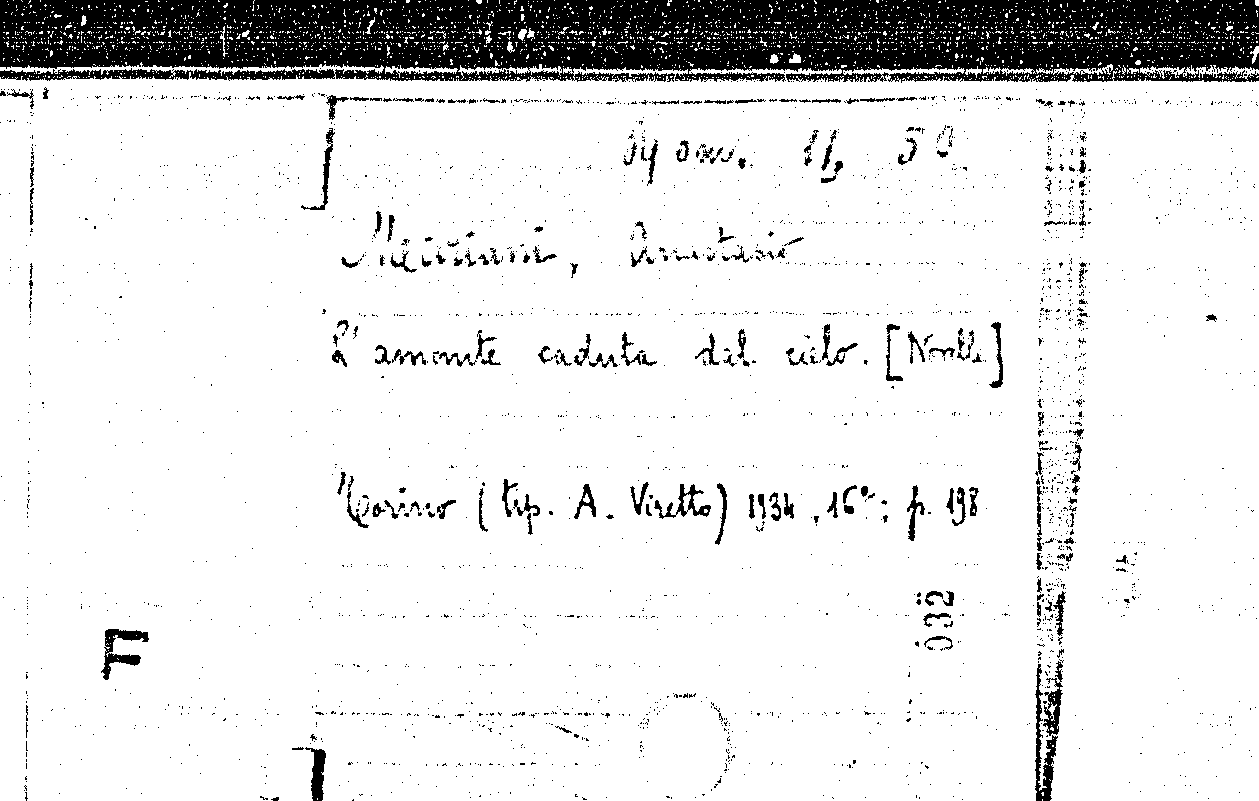 11, 50
Anastasio
L'amante caduta dal cielo. [Novelle]
Torino (tip. A. Viretto) 1934, 16°; p. 198
032
F